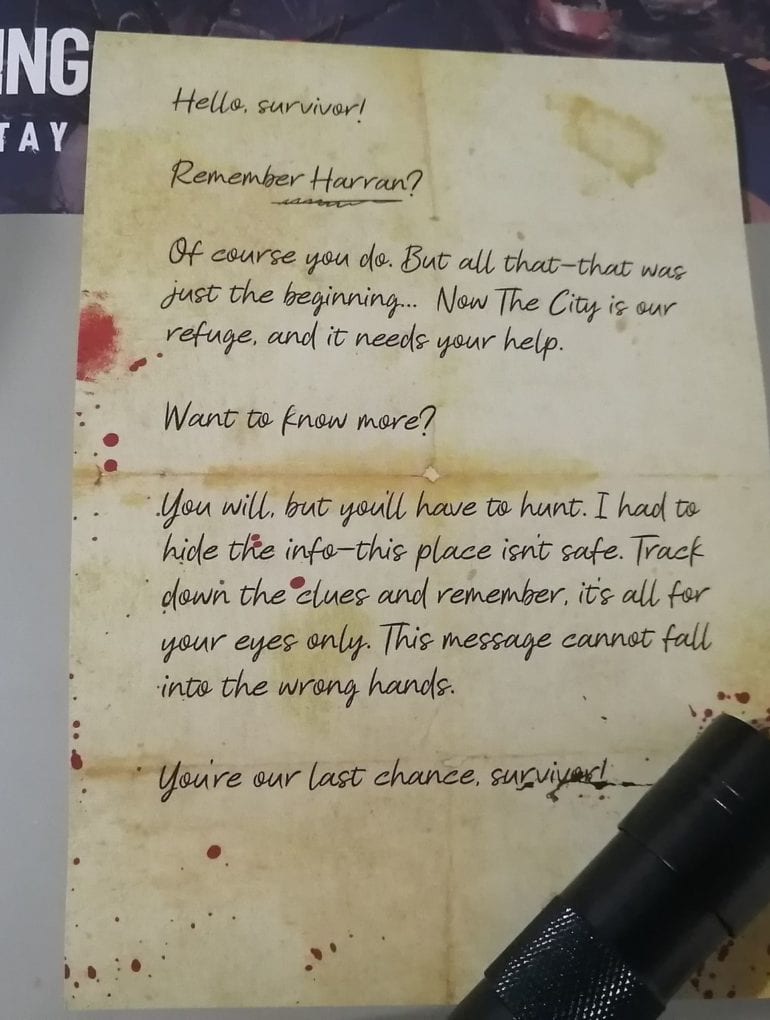 ING
TAY
Hello, survivor!
Remember Harran?
Of course you do. But all that–that was
just the beginning... Now The City is our
refuge, and it needs your help.
Want to know more?
You will, but you'll have to hunt. I had to
hide the info–this place isn't safe. Track
down the clues and remember, it's all for
your eyes only. This message cannot fall
into the wrong hands.
You're our last chance, survivor!